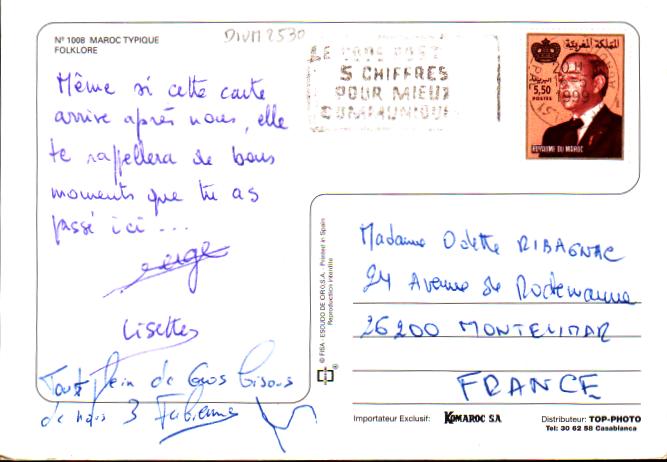 Nº 1008 MAROC TYPIQUE
FOLKLORE
DIVM 2530
Même si cette carte
arrive après nous, elle
te rappellera de bons
moments que tu as
passé ici ...
Serge
Lisette
Tout plein de Gros bisous
de nous 3 Fabienne
LE CODE POST
5 CHIFFRES
POUR MIEUX
COMMUNIQUE
المملكة المغربية
البريد
5,50
POSTES
ROYAUME DU MAROC
20 H
1999
© FISA - ESCUDO DE ORO, S.A. - Printed in Spain
Reproduction interdite
Madame Odette RIBAGNAC
24 Avenue de Rochemaure
26200 MONTELIMAR
FRANCE
Importateur Exclusif: KOMAROC SA
Distributeur: TOP-PHOTO
Tel: 30 62 58 Casablanca